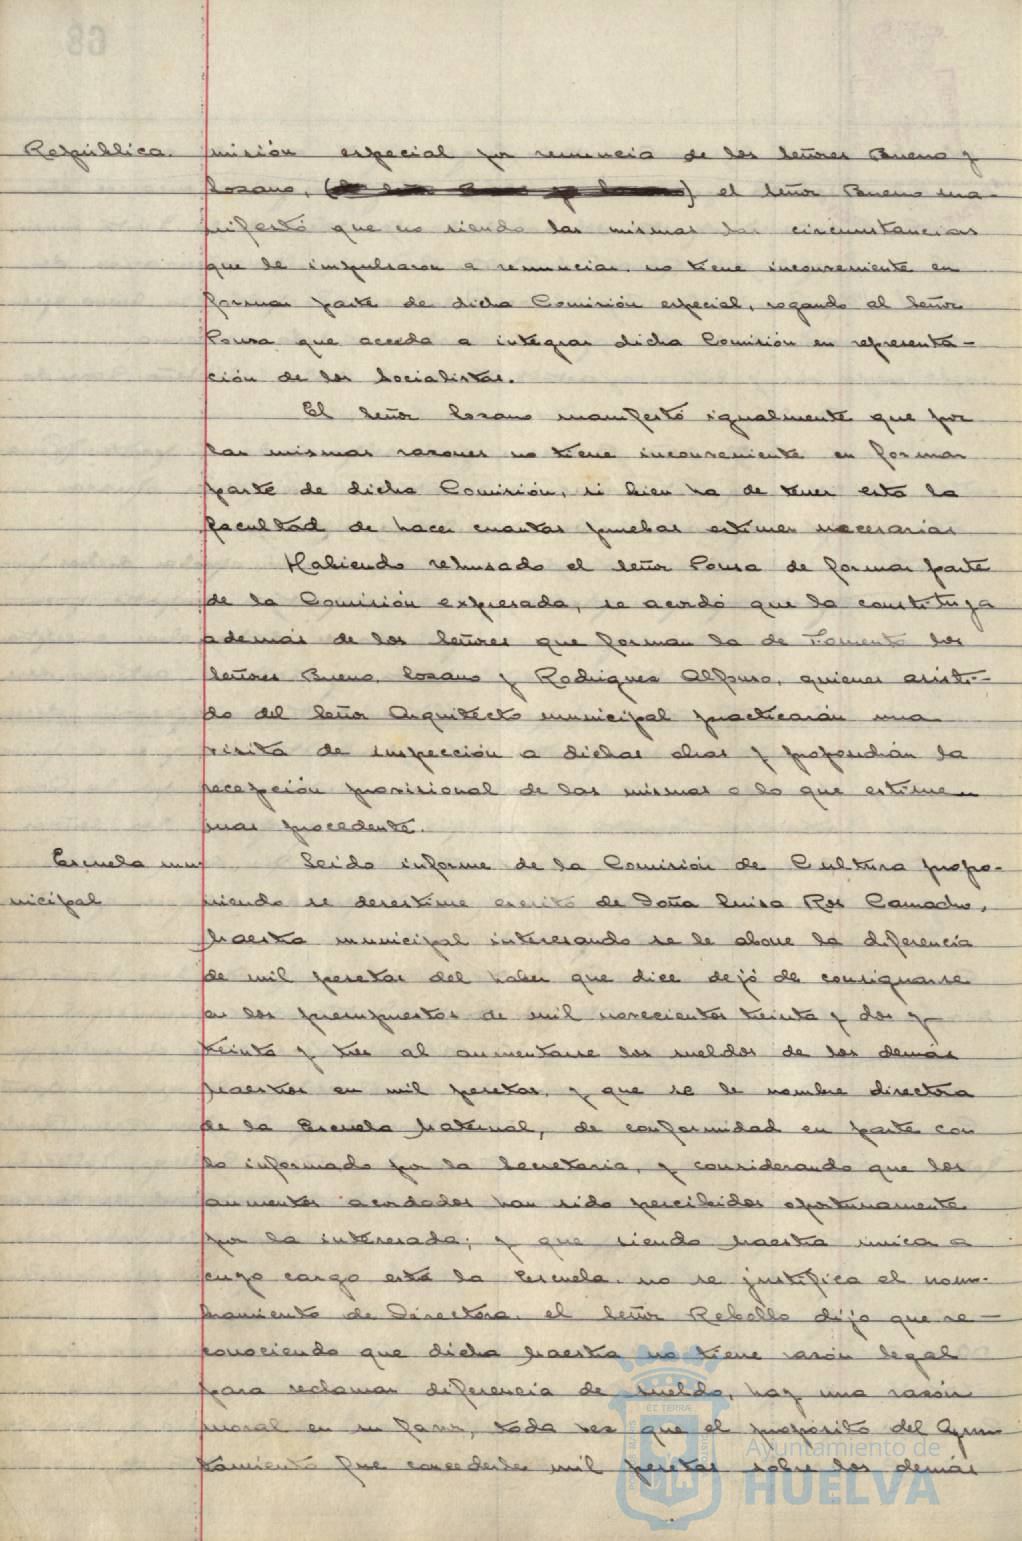 República.
misión especial por renuncia de los Señores Bueno y
Lozano, ( ) el Señor Bueno ma-
nifestó que no siendo las mismas las circunstancias
que le impulsaron a renunciar, no tiene inconveniente en
formar parte de dicha Comisión especial, rogando al Señor
Ponsa que acceda a integrar dicha Comisión en representa-
ción de los Socialistas.
El Señor Lozano manifestó igualmente que por
las mismas razones no tiene inconveniente en formar
parte de dicha Comisión, si bien ha de tener esta la
facultad de hacer cuantas pruebas estimen necesarias
Habiendo rehusado el Señor Ponsa de formar parte
de la Comisión expresada, se acordó que la constituya
además de los Señores que forman la de Fomento los
Señores Bueno, Lozano y Rodriguez Alfonso, quienes asisti-
do del Señor Arquitecto municipal practicarán una
visita de inspección a dichas obras y propondrán la
recepción provisional de las mismas o lo que estimen
mas procedente.
Escuela mu
nicipal
Leido informe de la Comisión de Cultura propo-
niendo se desestime escrito de Doña Luisa Ros Camacho,
Maestra municipal interesando se le abone la diferencia
de mil pesetas del haber que dice dejó de consignarse
en los presupuestos de mil novecientos treinta y dos y
treinta y tres al aumentarse los sueldos de los demás
maestros en mil pesetas, y que se le nombre directora
de la Escuela Maternal, de conformidad en parte con
lo informado por la Secretaria, y considerando que los
aumentos acordados han sido percibidos oportunamente
por la interesada; y que siendo Maestra unica a
cuyo cargo está la Escuela, no se justifica el nom-
bramiento de Directora, el Señor Rebollo dijo que re-
conociendo que dicha Maestra no tiene razón legal
para reclamar diferencia de sueldo, hay una razón
moral en su favor, toda vez que el propósito del Ayun
tamiento fue concederles mil pesetas sobre los demás
Ayuntamiento de
HUELVA